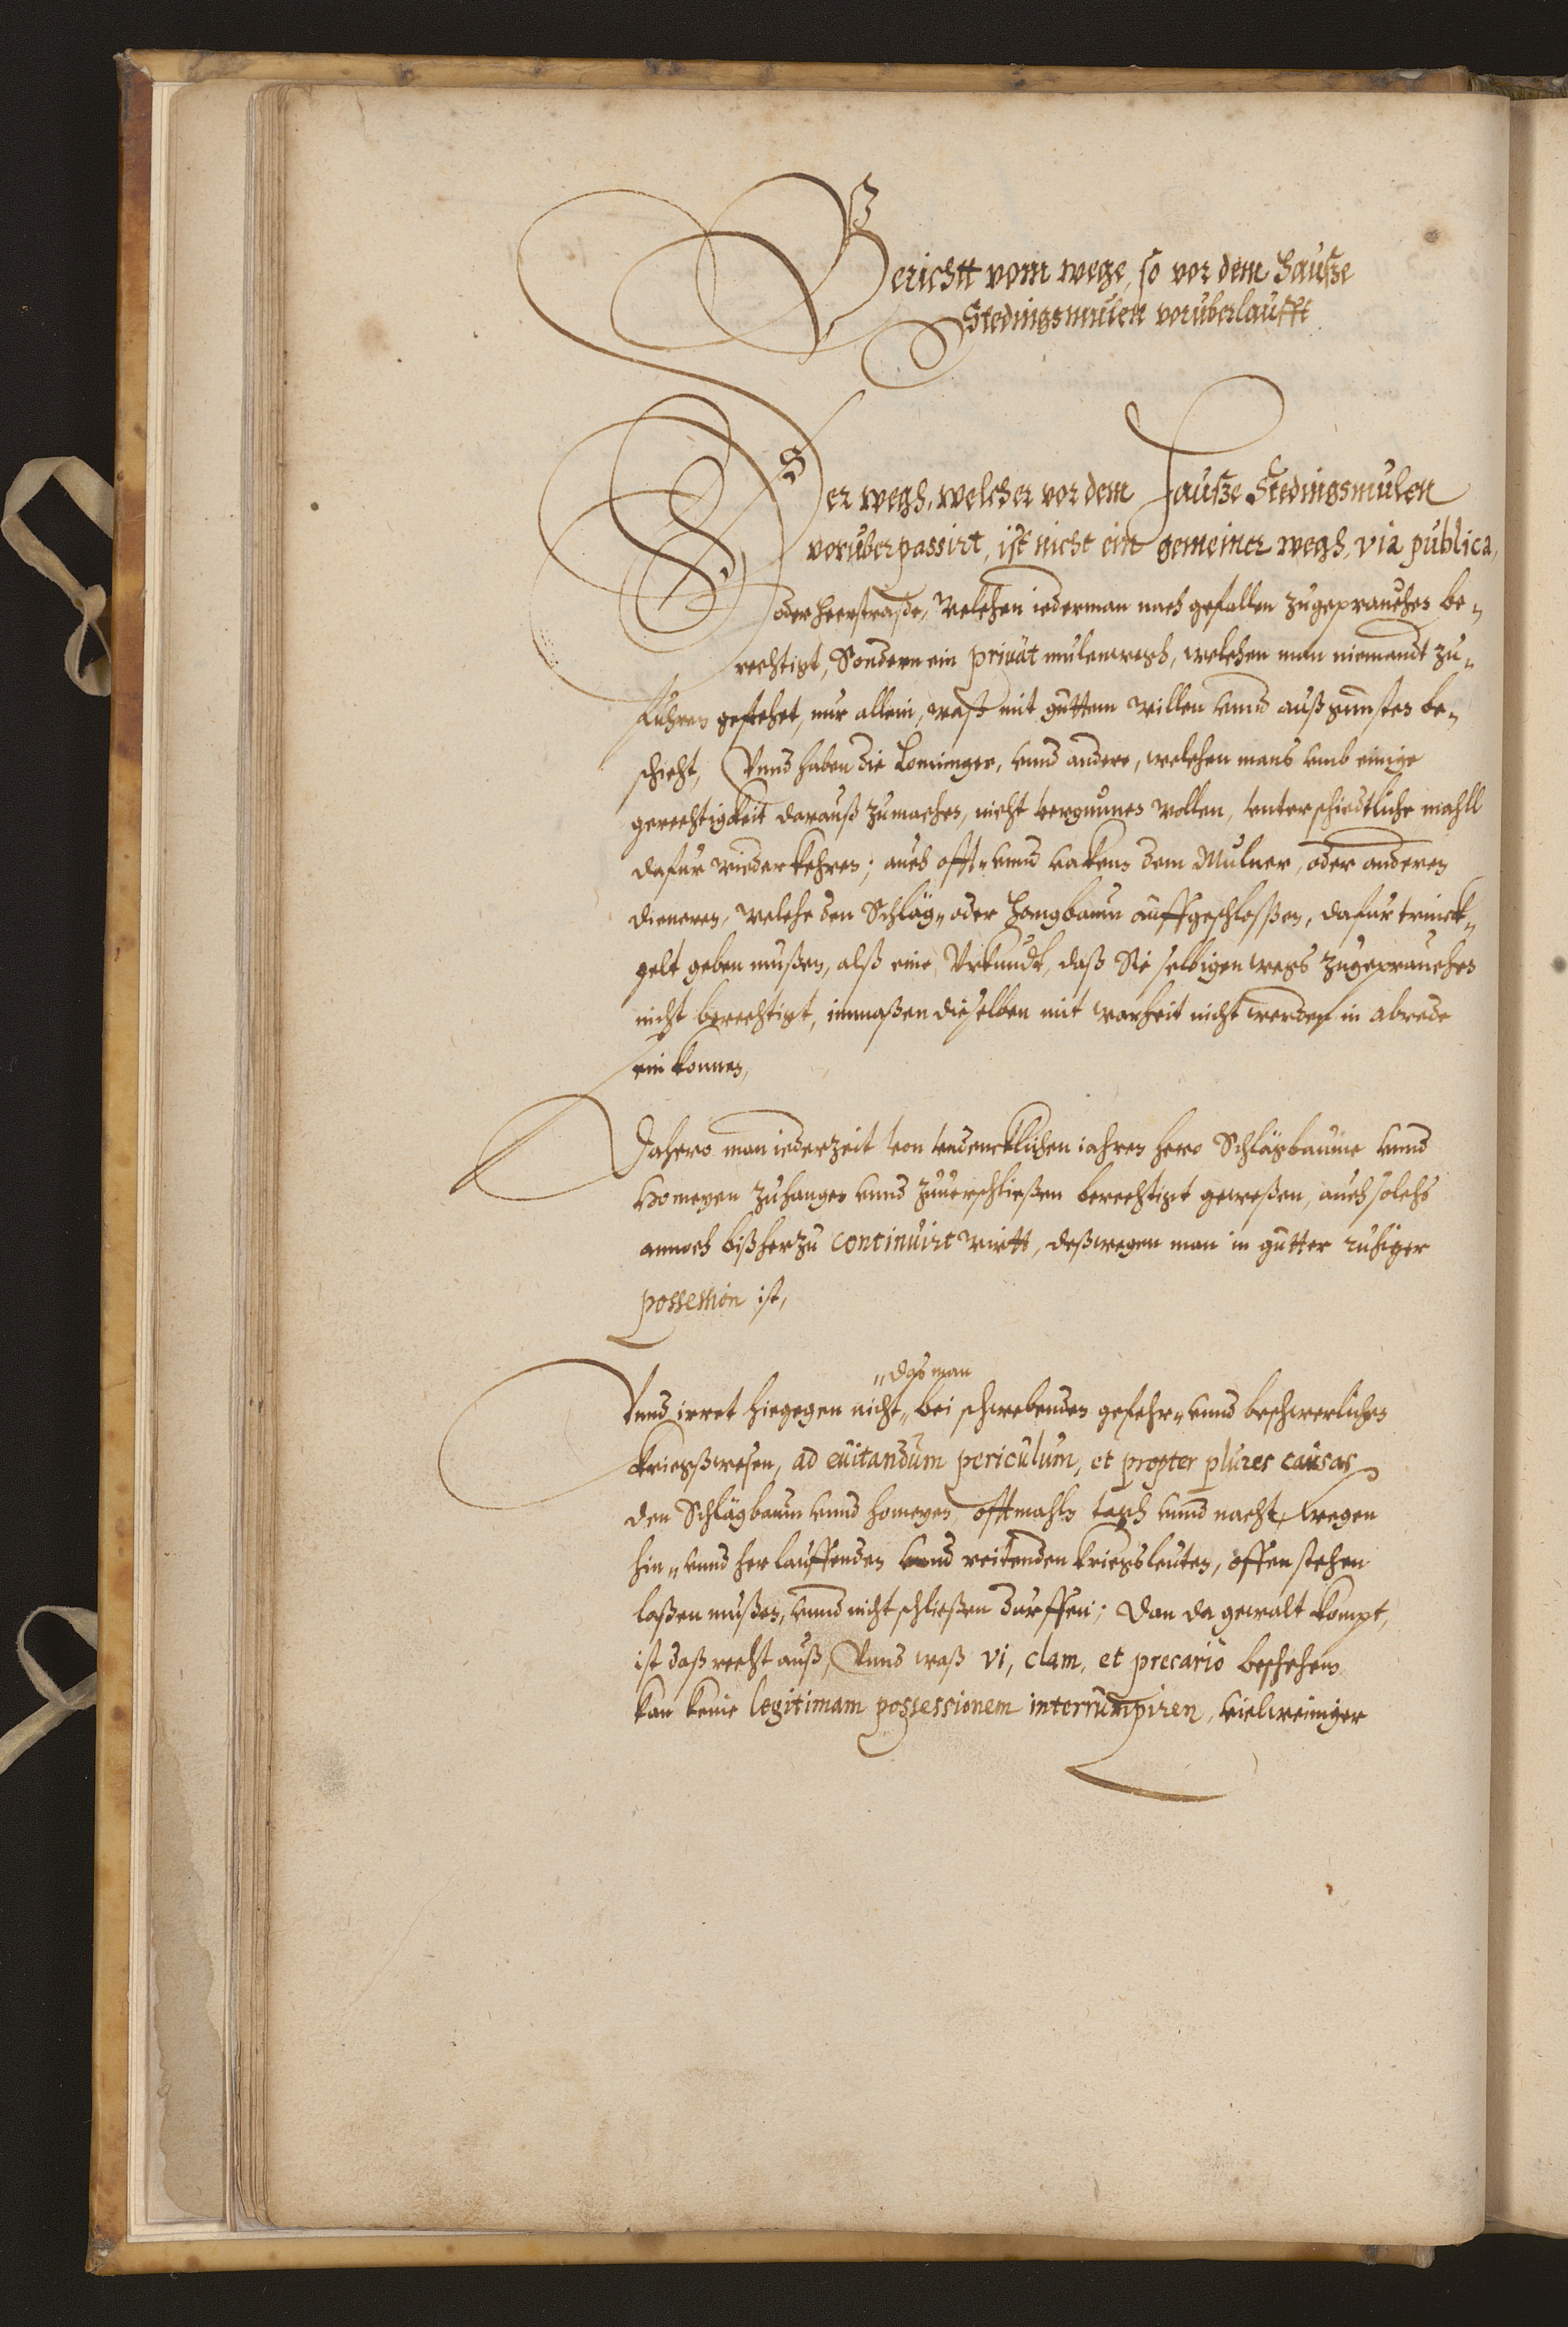 Berichtt vom wege, so vor dem Hausze
Stedingsmulen voruberlaufft
Der wegh, welcher vor dem Hausze Stedingsmulen
voruberpassirt, ist nicht ein gemeiner wegh, via publica,
oder heerstraße, welchen iederman nach gefallen zugeprauchen be„
rechtigt, Sondern ein privat mulenwegh, welchen man niemandt zu„
fuhren gestehet, nur allein, waß mit guttem willen unnd auß gunsten be„
schieht, Unnd haben die Loninger, unnd andere, welchen mans umb einige
gerechtigkeit darauß zumachen, nicht vergunnen wollen, unterschiedtliche mahll
dafur wiederkehren; auch offt„ unnd vakens dem Mulner, oder anderen
dieneren, welche den Schlag„ oder Hangbaum auffgeschloßen, dafur trinck„
gelt geben mußen, alß eine Urkundt, daß Sie selbigen wegs zugeprauchen
nicht berechtigt, inmaßen dieselben mit warheit nicht werden in abrede
sein konnen,
Dahero man iederzeit von undencklichen iahren hero Schlagbaume unnd
Homeyen zuhangen unnd zuuerschließen berechtigt geweßen, auch solchs
annoch bißherzu continuirt wirtt, deßwegen man in gutter ruhiger
possession ist,
„das man
Unnd irret hiegegen nicht„ bei schwebenden gefehr„ unnd beschwerlichen
kriegßwesen, ad euitandum periculum, et propter plures causas
den Schlagbaum unnd homeyen offtmahls tagh unnd nacht, wegen
hin„ unnd herlauffenden unnd reitenden kriegsleuten, offen stehen
laßen mußen, unnd nicht schließen durffen; Dan da gewalt kompt,
ist daß recht auß, Unnd waß vi, clam, et precario beschehen
kan keine legitimam possessionem interrumpiren, vielweiniger